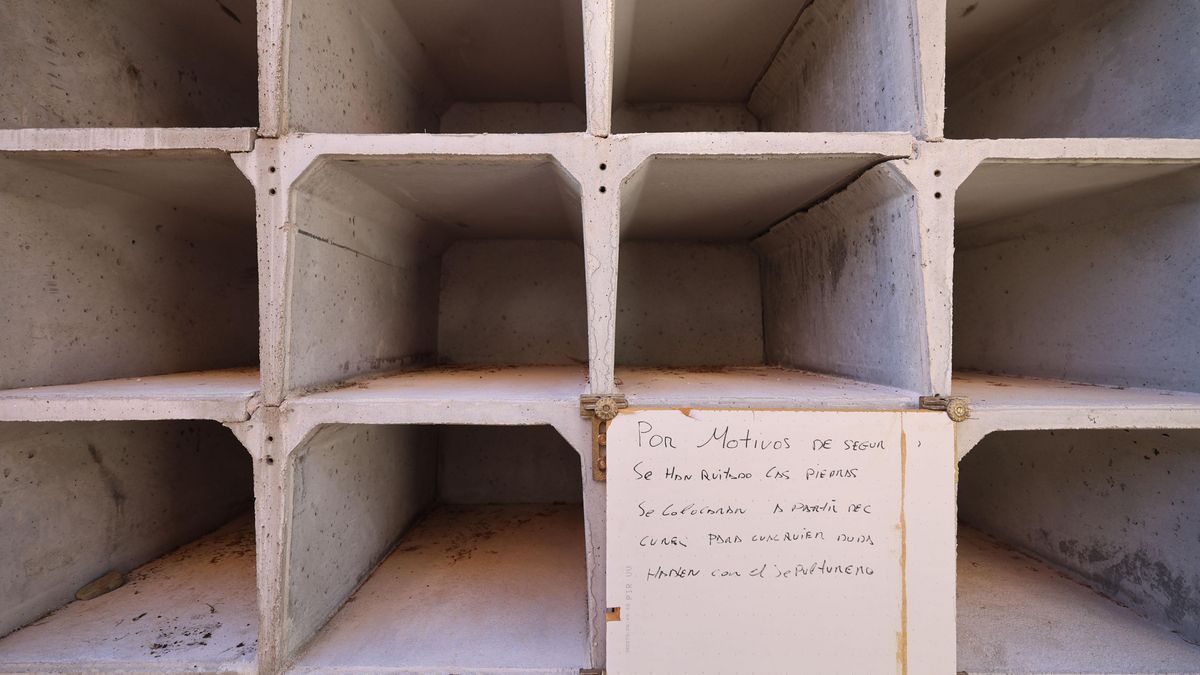 POR MOTIVOS DE SEGUR
SE HAN QUITADO LAS PIEDRAS
SE COLOCARAN A PARTIR DEL
LUNES PARA CUALQUIER DUDA
HABLEN CON EL SEPULTURERO